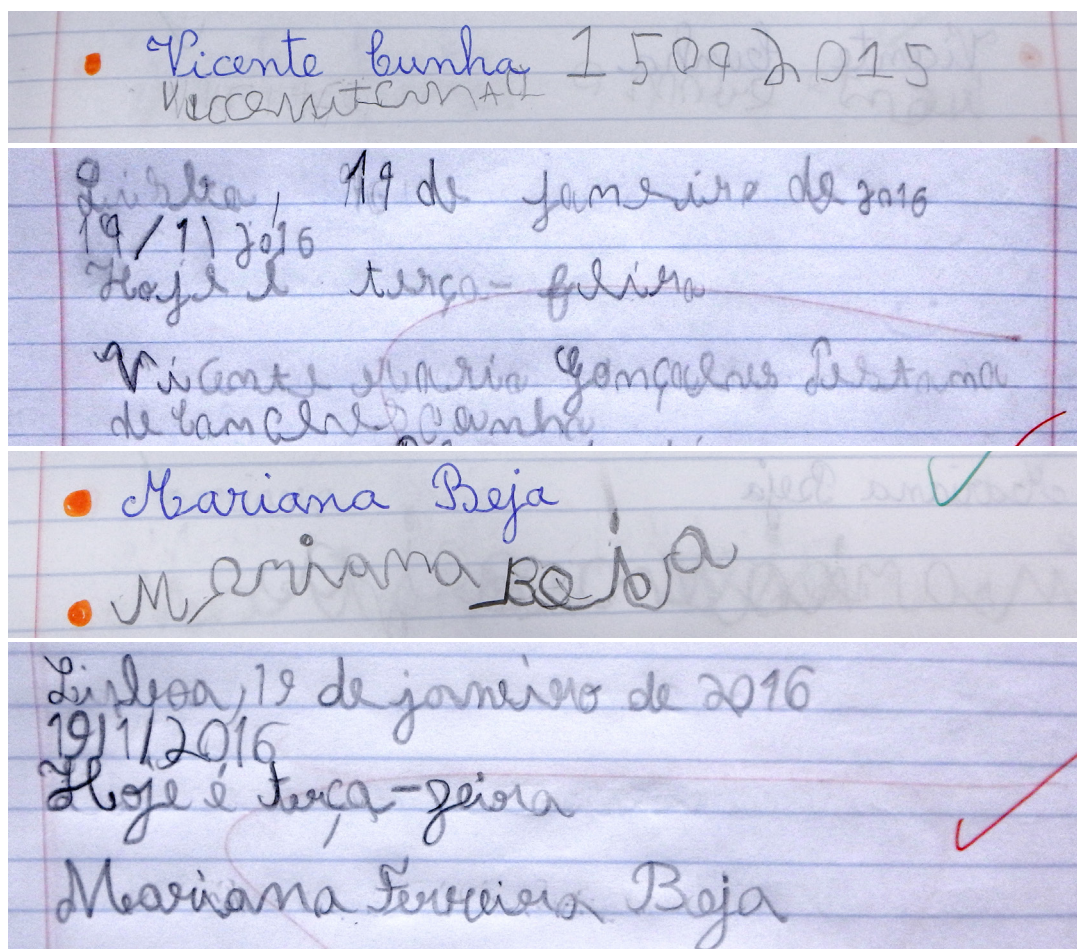 Vicente Cunha 15092015
VicenteCunha
Lisboa, 19 de janeiro de 2016
19/1/2016
Hoje é terça-feira
Vicente Maria Gonçalves Santana
de Cunha
Mariana Beja
Mariana Beja
Lisboa, 19 de janeiro de 2016
19/1/2016
Hoje é terça-feira
Mariana Ferreira Beja